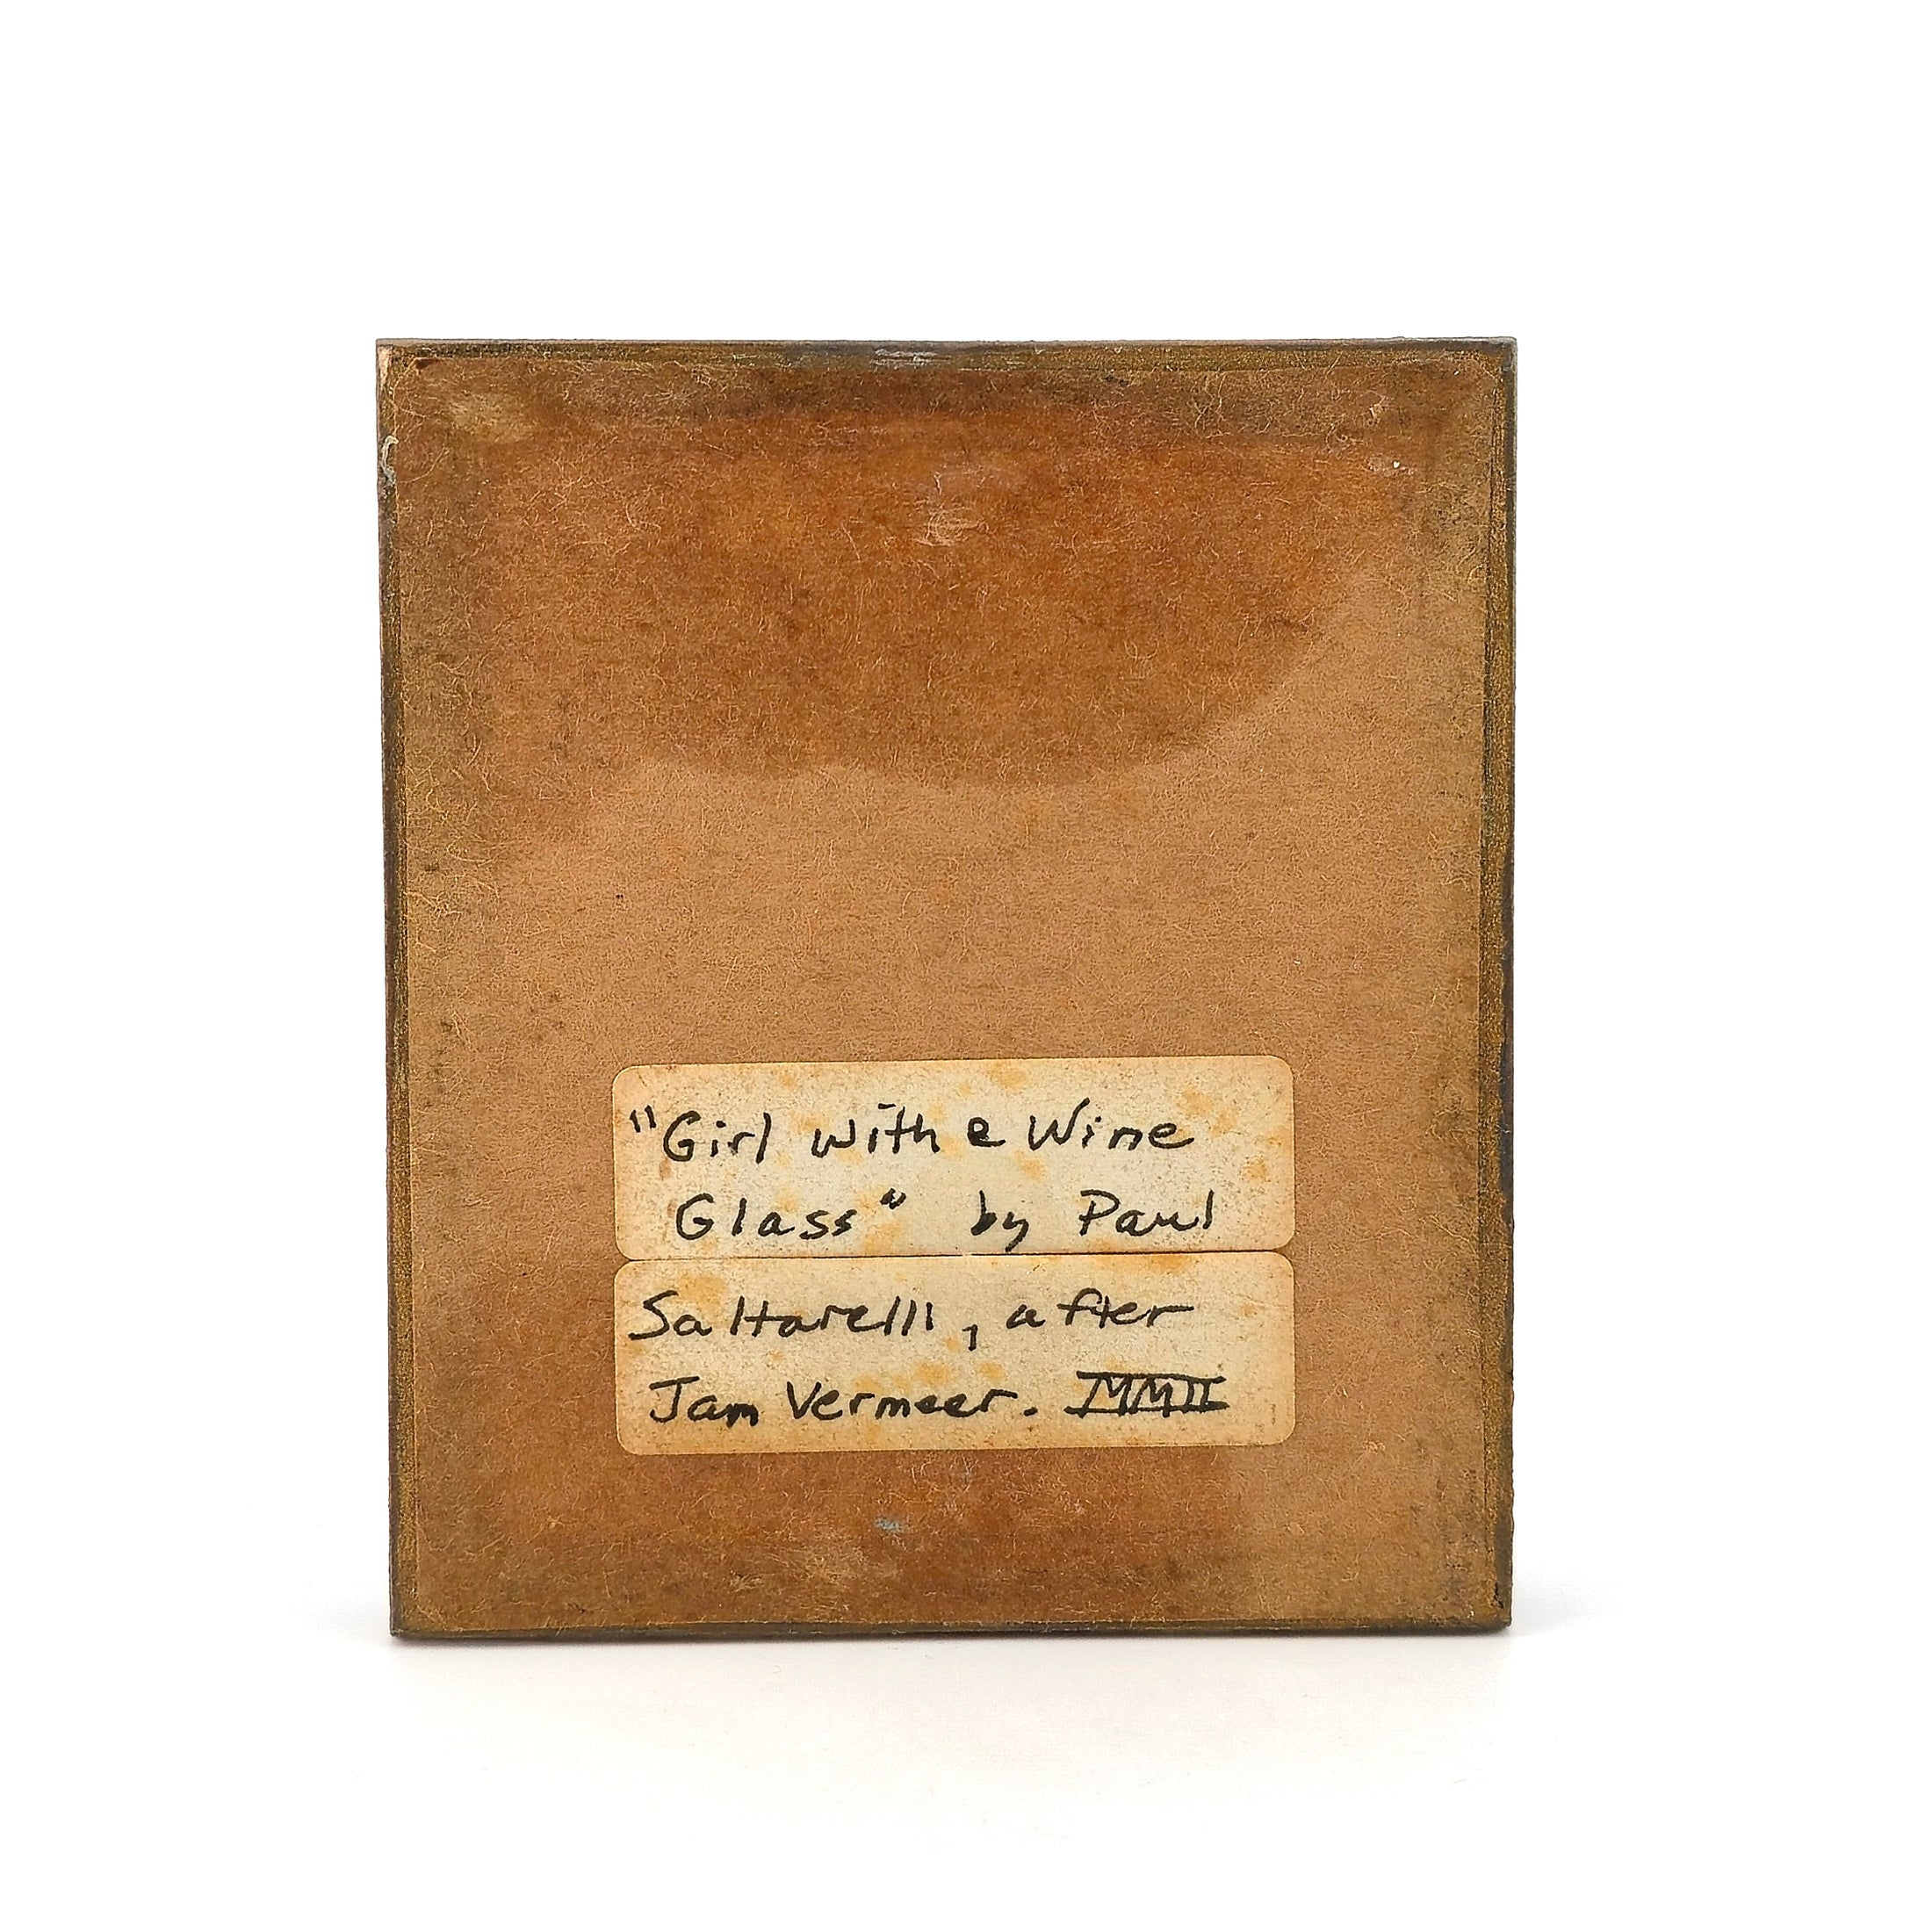 "Girl with a Wine
Glass" by Paul
Saltarelli, after
Jan Vermeer. MMII